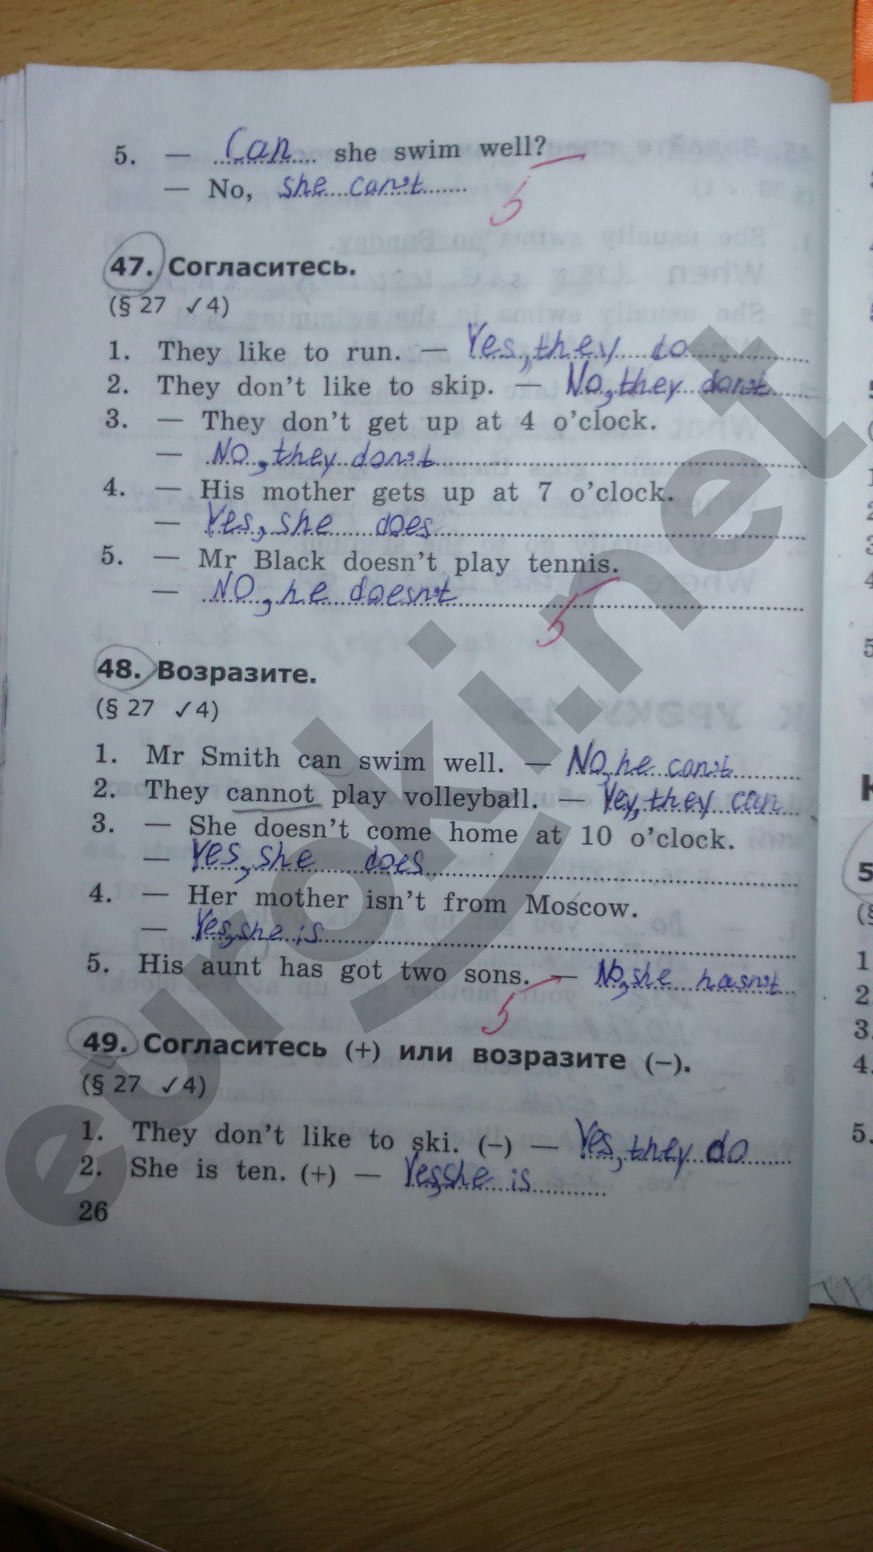 5. — Can she swim well?
— No, she can't
5
47. Согласитесь.
(§ 27 ✓4)
1. They like to run. — Yes, they do
2. They don't like to skip. — No, they don't
3. — They don't get up at 4 o'clock.
— No, they don't
4. — His mother gets up at 7 o'clock.
— Yes, she does
5. — Mr Black doesn't play tennis.
— No, he doesn't
5
48. Возразите.
(§ 27 ✓4)
1. Mr Smith can swim well. — No, he can't
2. They cannot play volleyball. — Yey, they can
3. — She doesn't come home at 10 o'clock.
— Yes, she does
4. — Her mother isn't from Moscow.
— Yes, she is
5. His aunt has got two sons. — No, she hasn't
5
49. Согласитесь (+) или возразите (–).
(§ 27 ✓4)
1. They don't like to ski. (–) — Yes, they do
2. She is ten. (+) — Yes, she is
26
euroki.net
5.
1
2
3.
4.
5.